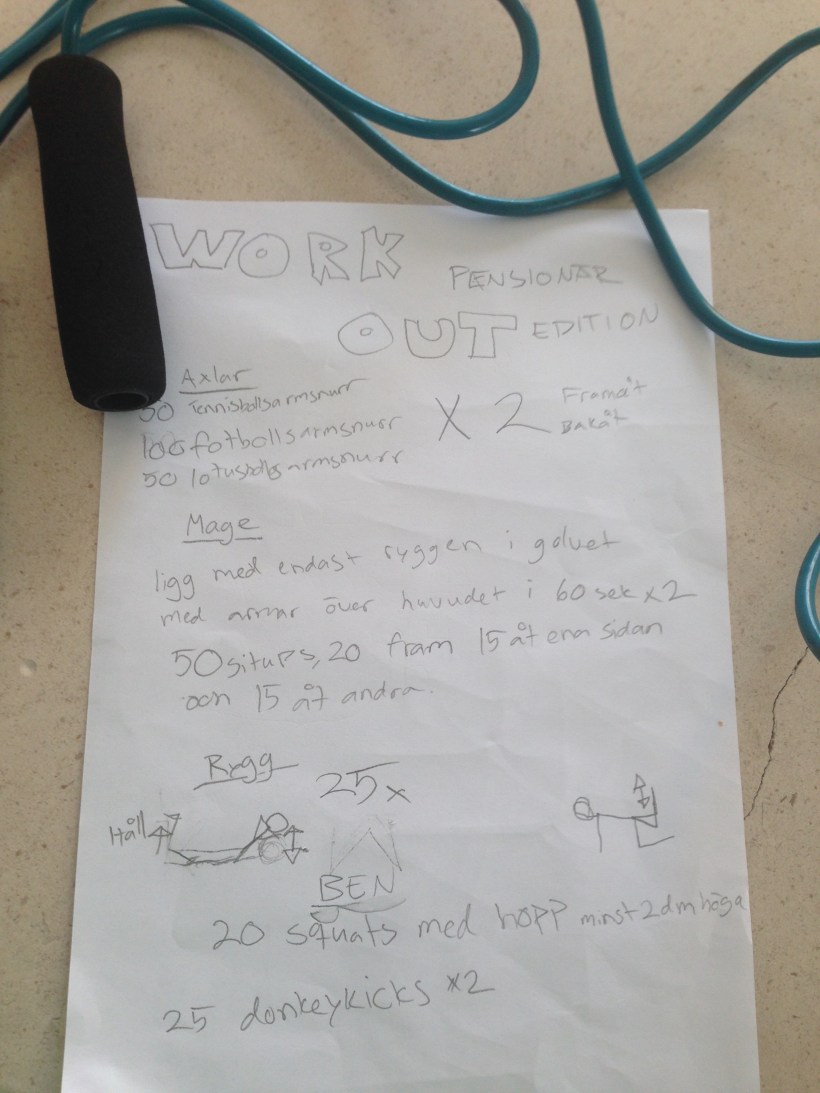 WORK
PENSIONÄR
OUT EDITION
Axlar
50 Tennisbollsarmsnurr
100 fotbollsarmsnurr
50 lotusbollsarmsnurr
X 2
Framåt
Bakåt
Mage
ligg med endast ryggen i golvet
med armar över huvudet i 60 sek x2
50 situps, 20 fram 15 åt ena sidan
och 15 åt andra.
Rygg
25x
Håll
BEN
20 squats med hopp minst 2dm höga
25 donkeykicks x2